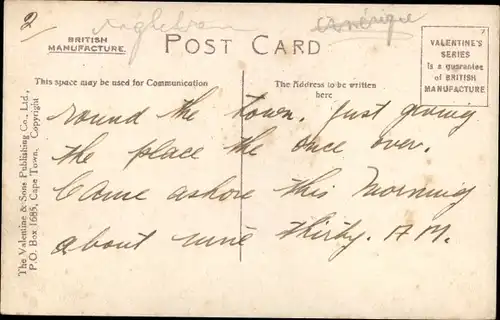 2
BRITISH
MANUFACTURE.
POST CARD
VALENTINE'S
SERIES
Is a guarantee
of BRITISH
MANUFACTURE
This space may be used for Communication
The Address to be written
here
round the town. Just giving
the place the once over.
Came ashore this Morning
about nine thirty. A.M.
The Valentine & Sons Publishing Co., Ltd.,
P.O. Box 1685, Cape Town. Copyright